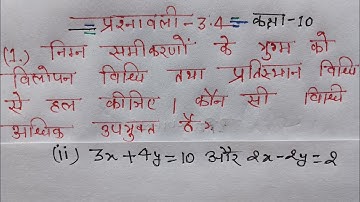 प्रश्नावली - 3.4 = कक्षा - 10
(1.) निम्न समीकरणों के युग्म को
विलोपन विधि तथा प्रतिस्थान विधि
से हल कीजिए । कौन सी विधि
अधिक उपयुक्त है
(ii) 3x+4y=10 और 2x-2y=2